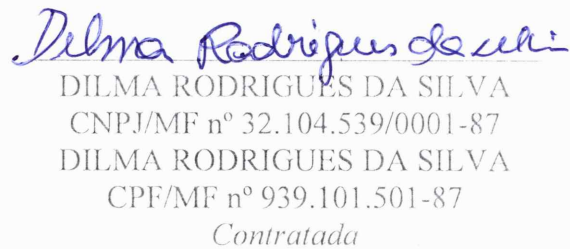 Dilma Rodrigues da silva
DILMA RODRIGUES DA SILVA
CNPJ/MF nº 32.104.539/0001-87
DILMA RODRIGUES DA SILVA
CPF/MF nº 939.101.501-87
Contratada